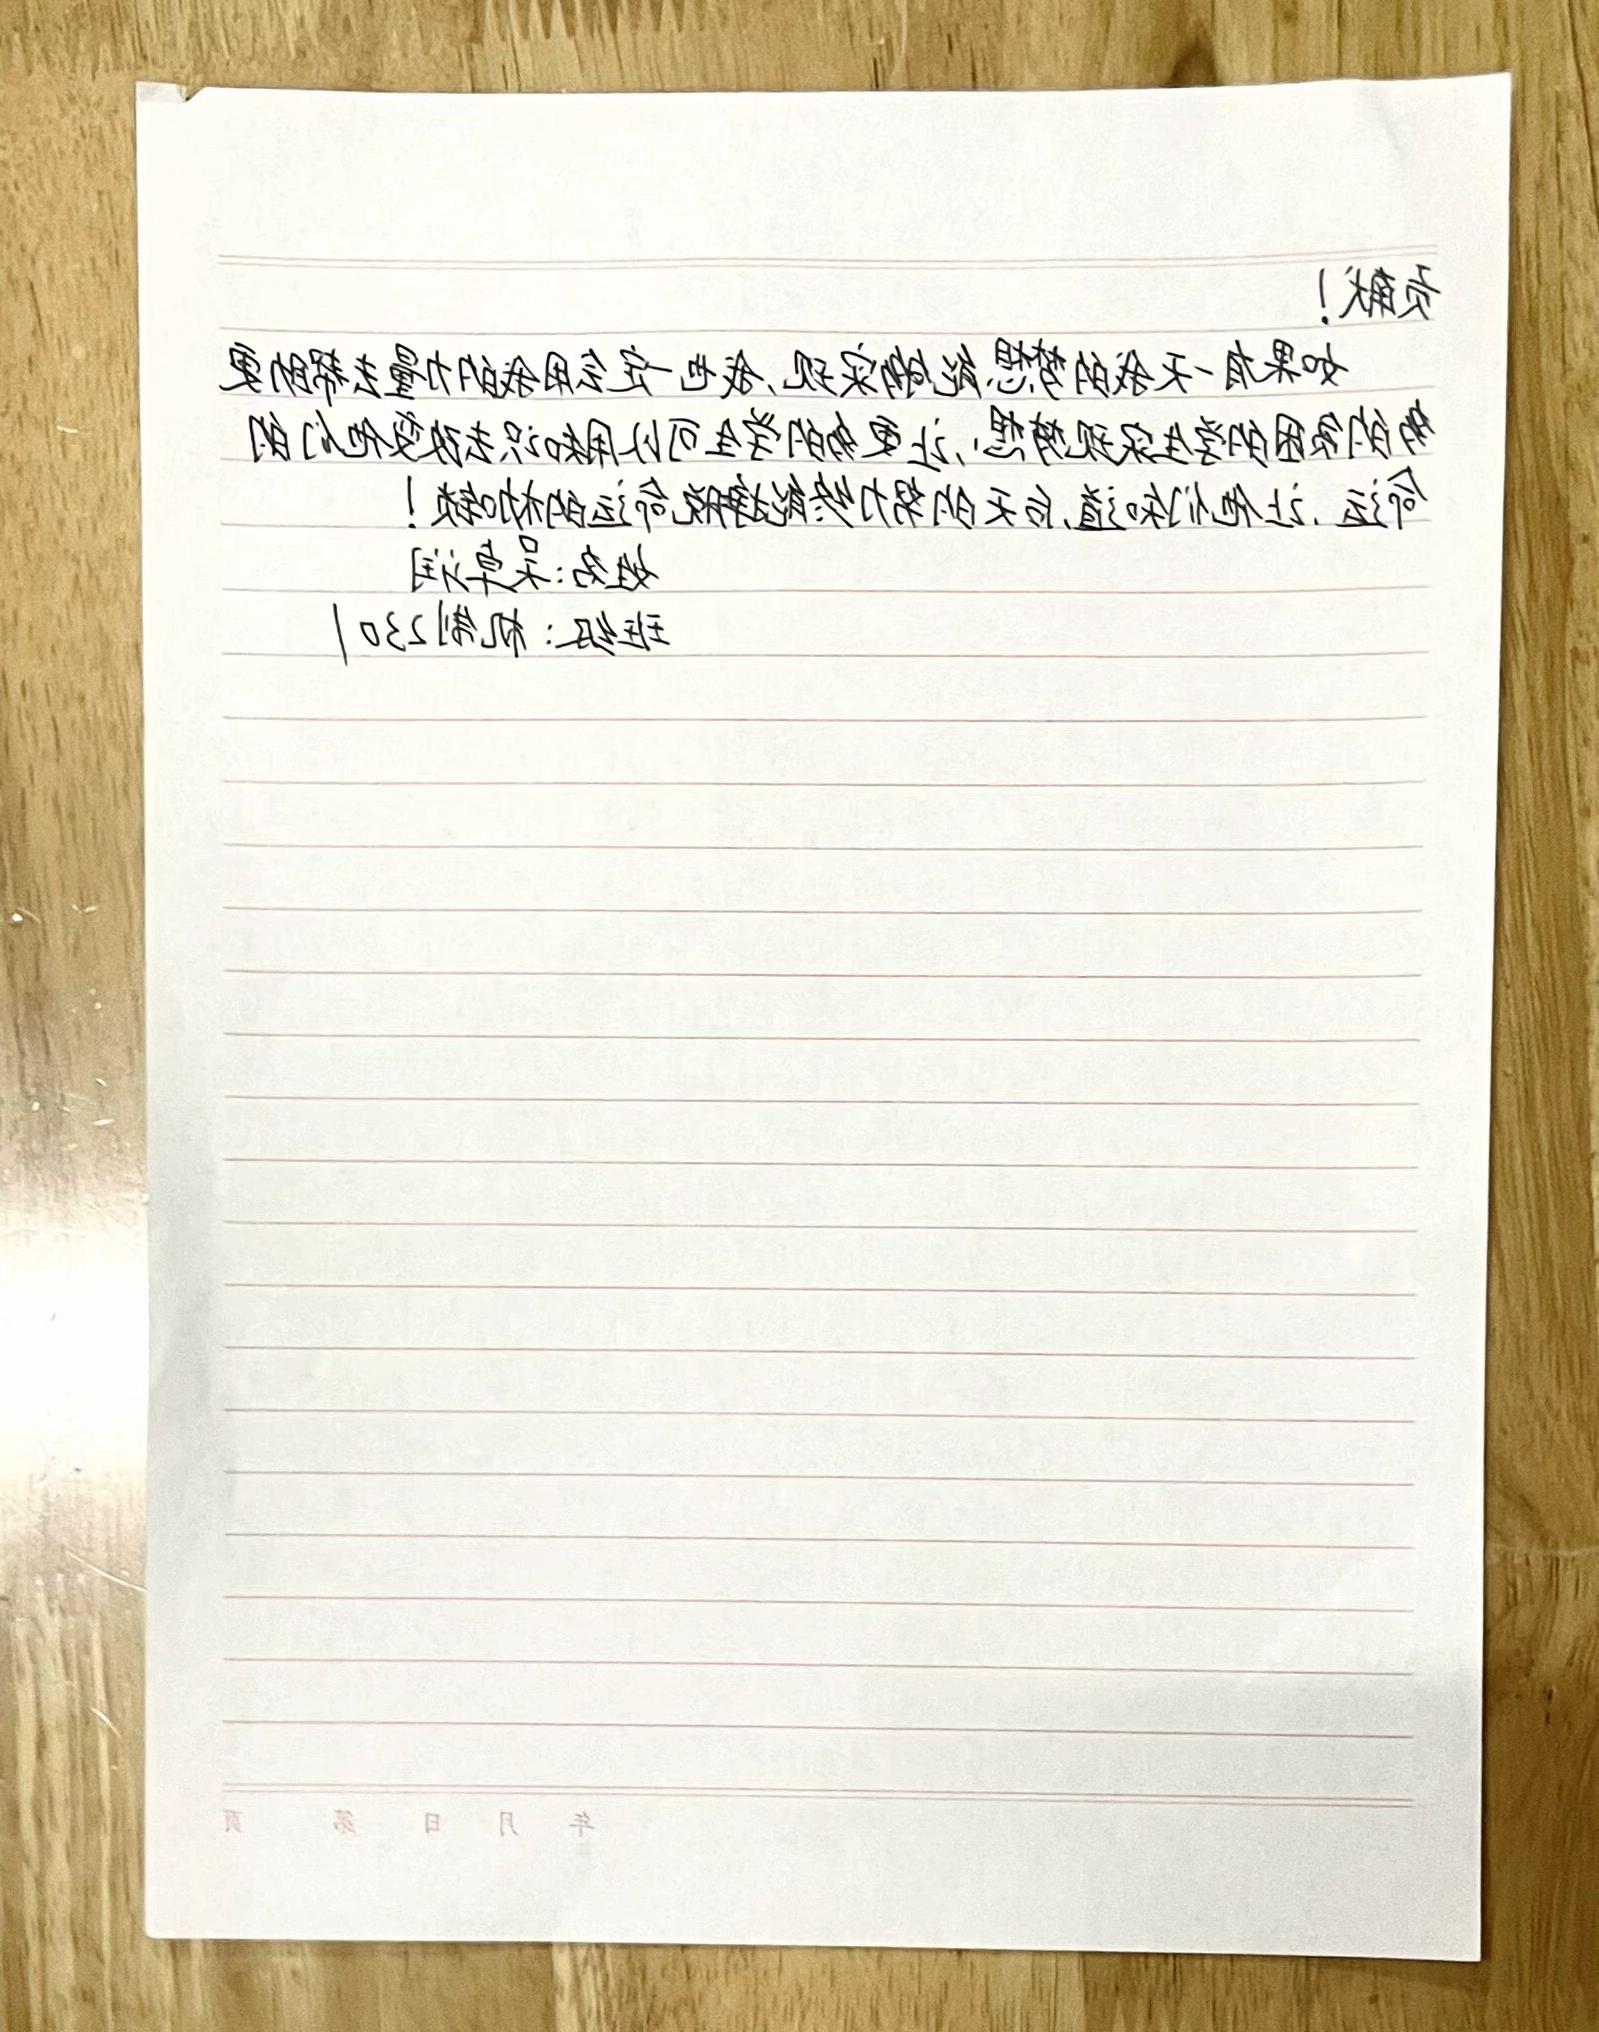 贡献！
如果有一天我的梦想能够实现，我也一定会用我的力量去帮助更
多的贫困的学生实现梦想，让更多的学生可以用知识去改变他们的
命运，让他们知道，后天的努力终能挣脱命运的枷锁！
姓名：吴卓润
班级：机制2301
年 月 日 第 页